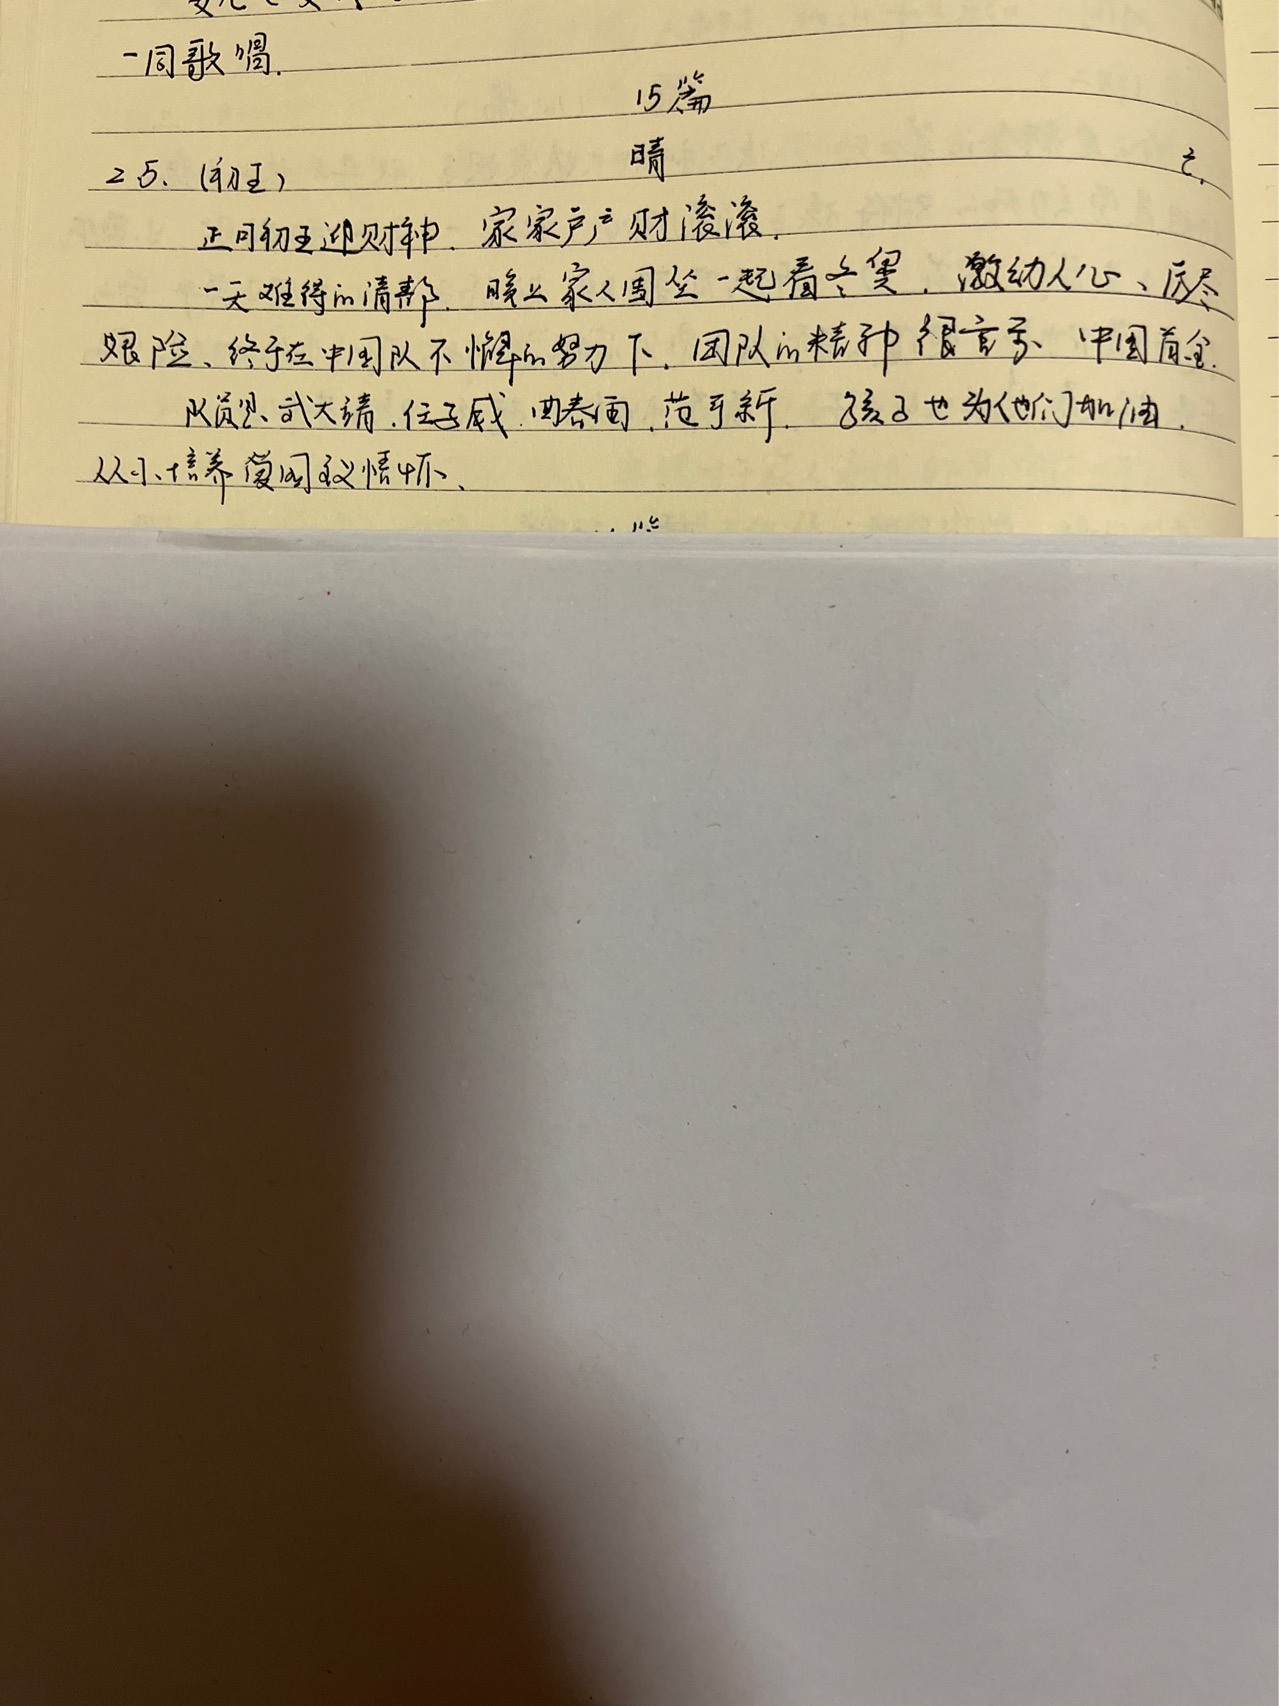 一同歌唱.
15篇
2.5. (初五) 晴 二.
正月初五迎财神. 家家户户财滚滚.
一天难得的清静. 晚上家人围坐一起看冬奥. 激动人心、历尽
艰险、终于在中国队不懈的努力下. 团队的精神很言示、中国首金.
队员以武大靖.任子威.曲春雨.范可新. 孩子也为他们加油.
从小培养爱国主义情怀、